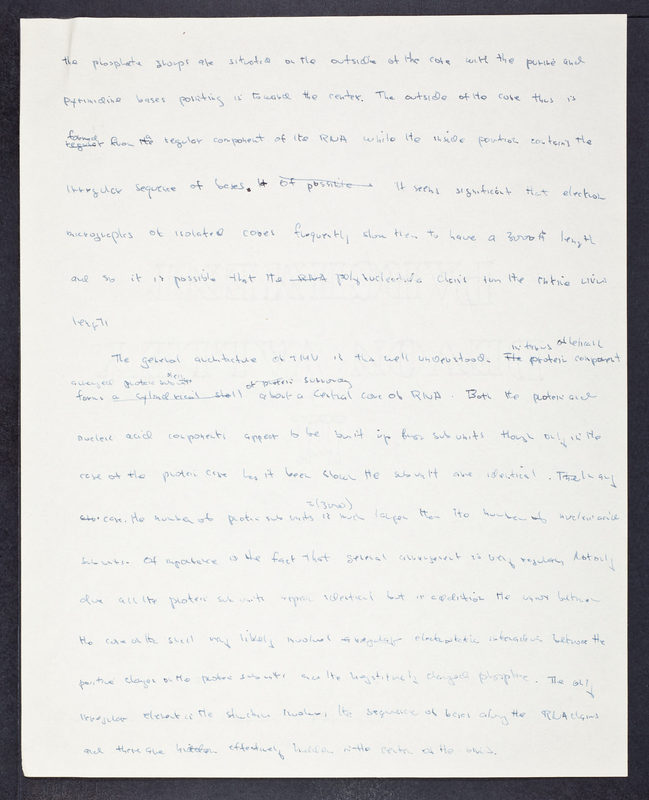 the phosphate groups are situated on the outside of the core with the purine and
pyrimidine bases pointing in toward the center. The outside of the core thus is
formed from a regular component of the RNA while the inside portion contains the
irregular sequence of bases. It seems significant that electron
micrographs of isolated cores frequently show them to have a 3000Å length
and so it is possible that the RNA polynucleotide chains run the entire virus
length
The general architecture of TMV is thus well understood. The protein component
in terms of helically
arranged protein sub units
forms a cylindrical shell of protein about a central core of RNA. Both the protein and
nucleic acid components appear to be built up from sub units though only in the
case of the protein case has it been shown the subunits are identical. In any
case, the number of protein sub units (3000) is much larger than the number of nucleic acid
subunits. Of importance is the fact that general arrangement is very regular. Not only
are all the protein sub units identical but in addition the union between
the core and the shell very likely involves regular electrostatic interactions between the
positive charges on the protein subunits and the negatively charged phosphate. The only
irregular element in the structure involves the sequence of bases along the RNA chains
and these are hidden effectively in the center of the virus.